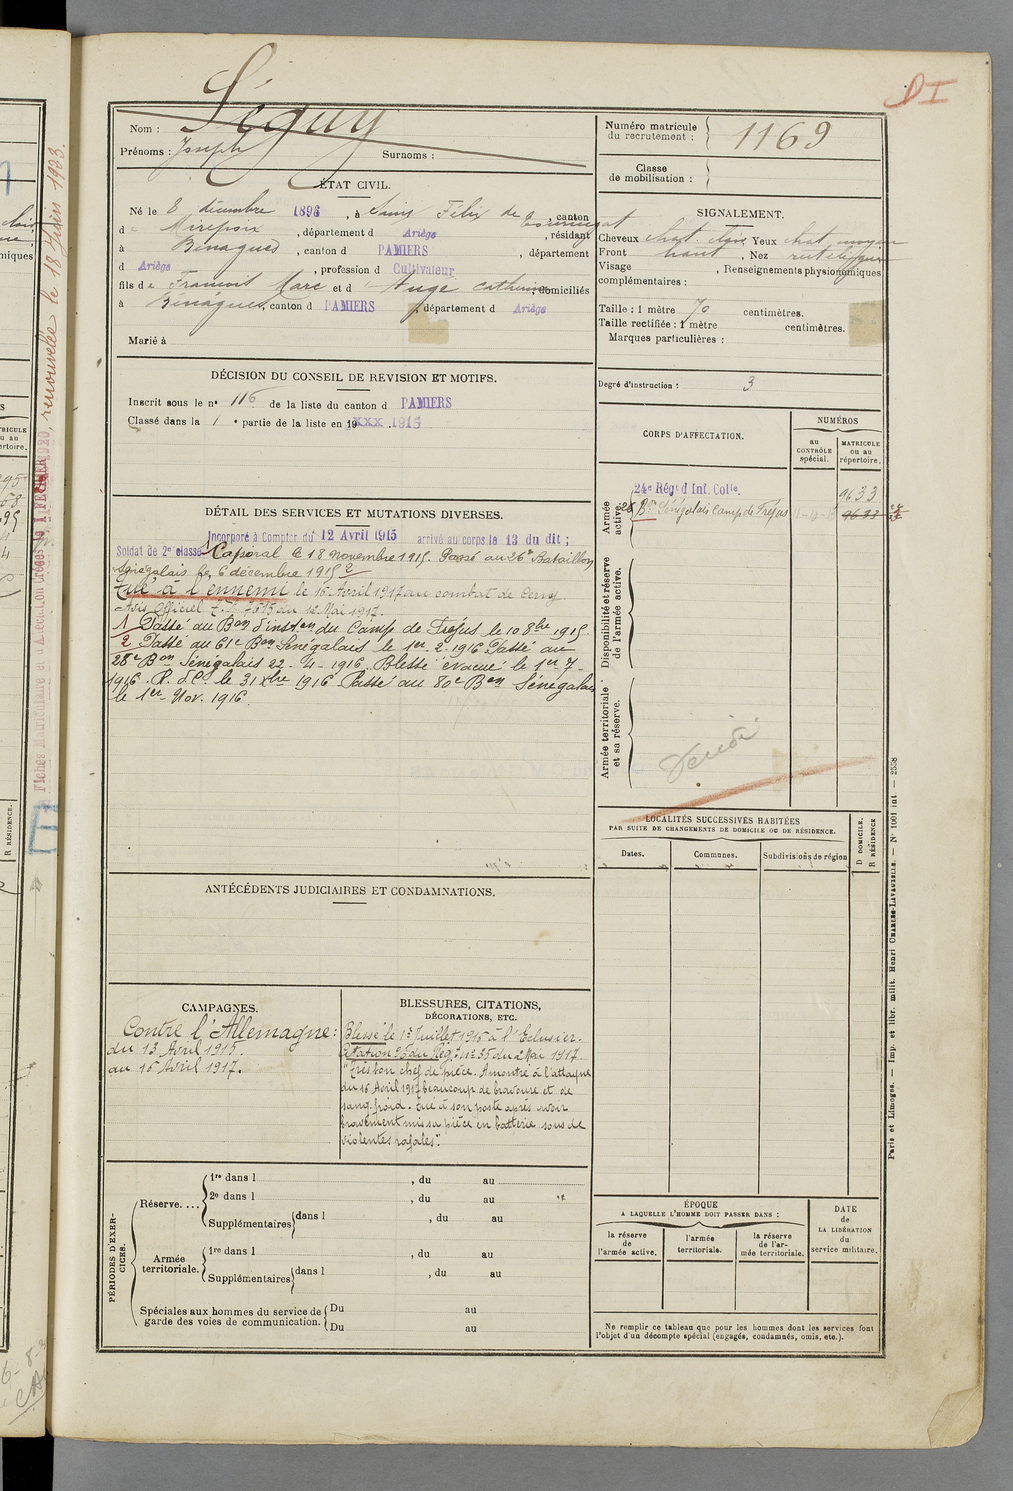 DI
Séguy
Nom :
Prénoms : Joseph Surnoms :
Numéro matricule
du recrutement :
1169
Classe
de mobilisation :
ÉTAT CIVIL.
Né le 8 décembre 1896, à Saint Félix de Tournegat, canton
de Mirepoix, département d Ariège, résidant
à Bénagues, canton d PAMIERS, département
d Ariège, profession d Cultivateur
fils de François Marc et d Auge Catherine, domiciliés
à Bénagues, canton d PAMIERS, département d Ariège
Marié à
SIGNALEMENT.
Cheveux chat. clair Yeux chat. moyen
Front haut, Nez rectiligne
Visage , Renseignements physionomiques
complémentaires :
Taille : 1 mètre 70 centimètres.
Taille rectifiée : 1 mètre centimètres.
Marques particulières :
Degré d'instruction : 3
DÉCISION DU CONSEIL DE REVISION ET MOTIFS.
Inscrit sous le n° 116 de la liste du canton d PAMIERS
Classé dans la 1 e partie de la liste en 19 XXX 1915
CORPS D'AFFECTATION.
NUMÉROS
au
CONTRÔLE
spécial.
MATRICULE
ou au
répertoire.
Armée
active.
24e Régt d Inf. Colle. 9633
28 Bon Sénégalais Camp de Fréjus 9633
Disponibilité et réserve
de l'armée active.
Armée territoriale
et sa réserve.
DÉTAIL DES SERVICES ET MUTATIONS DIVERSES.
Incorporé à Compter du 12 Avril 1915 arrivé au corps le 13 du dit ;
Soldat de 2e classe 1 Caporal le 18 novembre 1915. Passé au 26e Bataillon
Sénégalais le 6 décembre 1915 2
Tué à l'ennemi le 16 Avril 1917 au combat de Cerny
Avis officiel du 12 Mai 1917.
1 Passé au Bon d'inston du Camp de Fréjus le 10 8bre 1915
2 Passé au 61e Bon Sénégalais le 1er-2-1916 Passé au
28e Bon Sénégalais 22-4-1916. Blessé évacué le 1er-7-
1916. R. d C. le 31 Xbre 1916 Passé au 80e Bon Sénégalais
le 1er Nov. 1916.
LOCALITÉS SUCCESSIVES HABITÉES
PAR SUITE DE CHANGEMENTS DE DOMICILE OU DE RÉSIDENCE.
Dates.
Communes.
Subdivisions de région
D DOMICILE.
R RÉSIDENCE
ANTÉCÉDENTS JUDICIAIRES ET CONDAMNATIONS.
CAMPAGNES.
Contre l'Allemagne :
du 13 Avril 1915.
au 16 Avril 1917.
BLESSURES, CITATIONS,
DÉCORATIONS, ETC.
Blessé le 1er Juillet 1916 à l'Eclusier.
Citation O/ du Rég. : n° 55 du 2 Mai 1917
"Très bon chef de pièce. A montré à l'attaque
du 16 Avril 1917 beaucoup de bravoure et de
sang froid. tué à son poste après avoir
bravement mis sa pièce en batterie sous de
violentes rafales".
PÉRIODES D'EXER-
CICES.
Réserve....
1re dans l , du au
2e dans l , du au
Supplémentaires dans l , du au
Armée
territoriale.
1re dans l , du au
Supplémentaires dans l , du au
Spéciales aux hommes du service de
garde des voies de communication.
Du au
Du au
ÉPOQUE
A LAQUELLE L'HOMME DOIT PASSER DANS :
la réserve
de
l'armée active.
l'armée
territoriale.
la réserve
de l'ar-
mée territoriale.
DATE
de
LA LIBÉRATION
du
service militaire.
Ne remplir ce tableau que pour les hommes dont les services font
l'objet d'un décompte spécial (engagés, condamnés, omis, etc.).
Paris et Limoges. — Imp. et libr. milit. Henri CHARLES-LAVAUZELLE. — N° 1001 int. — 2558
renouvelée le 18 Juin 1923.
R RÉSIDENCE.